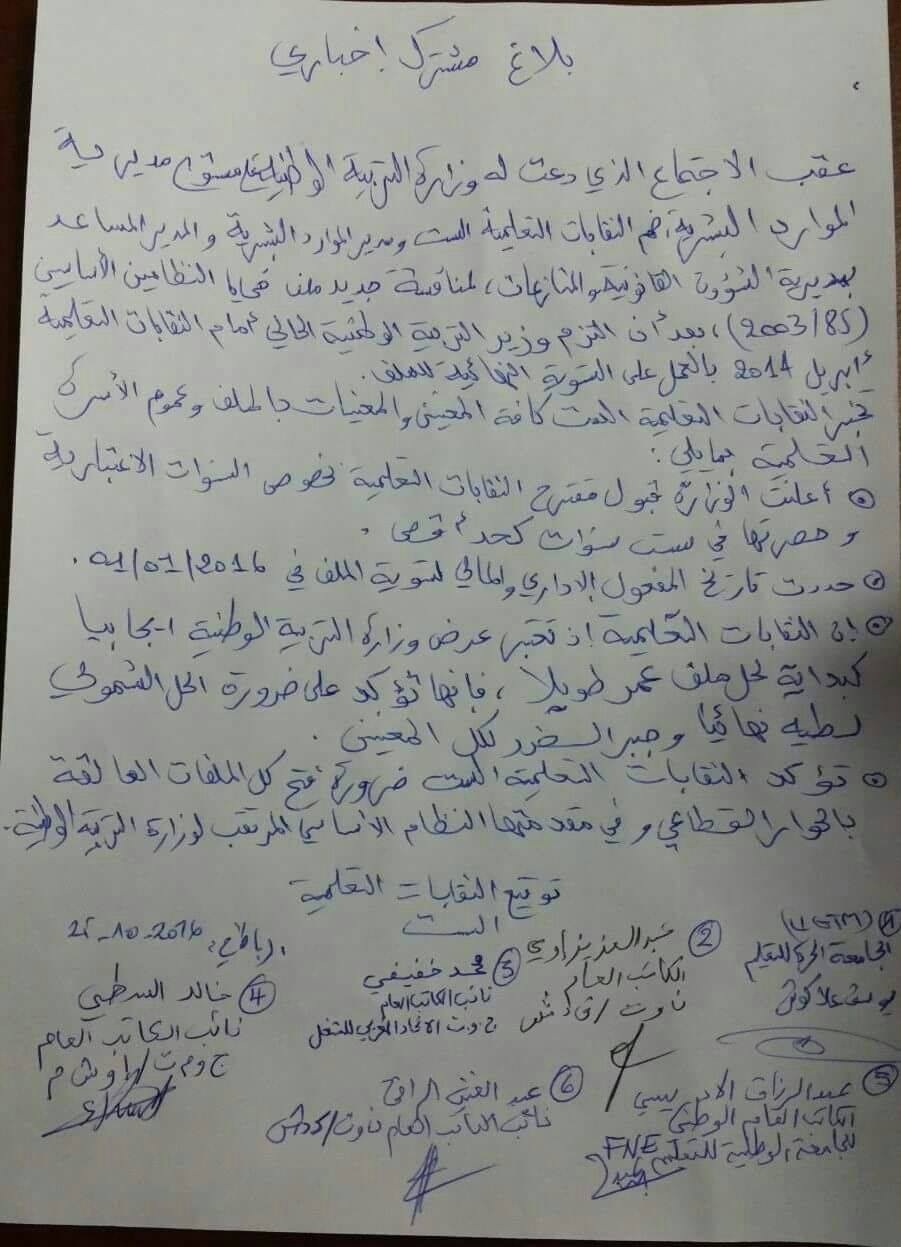 بلاغ مشترك إخباري
عقب الاجتماع الذي دعت له وزارة التربية الوطنية على مستوى مديرية
الموارد البشرية، ضم النقابات التعليمية الست ومدير الموارد البشرية والمدير المساعد
بمديرية الشؤون القانونية والمنازعات، لمناقشة جديد ملف ضحايا النظامين الأساسيين
(2003/85)، بعد أن التزم وزير التربية الوطنية الحالي أمام النقابات التعليمية
أبريل 2014 بالعمل على التسوية النهائية للملف.
تخبر النقابات التعليمية الست كافة المعنيين والمعنيات بالملف وعموم الأسرة
التعليمية بمايلي:
أعلنت الوزارة قبول مقترح النقابات التعليمية بخصوص السنوات الاعتبارية
وحصرتها في ست سنوات كحد أقصى.
حددت تاريخ المفعول الإداري والمالي لتسوية الملف في 01/01/2016.
إن النقابات التعليمية إذ تعتبر عرض وزارة التربية الوطنية إيجابيا
كبداية لحل ملف عمر طويلا، فإنها تؤكد على ضرورة الحل الشمولي
لطيه نهائيا وجبر الضرر لكل المعنيين.
تؤكد النقابات التعليمية الست ضرورة فتح كل الملفات العالقة
بالحوار القطاعي وفي مقدمتها النظام الأساسي المرتقب لوزارة التربية الوطنية.
توقيع النقابات التعليمية
الست
الرباط في: 25-10-2016
① (UGTM)
الجامعة الحرة للتعليم
يوسف علاكوش
② عبد العزيز إيوي
الكاتب العام
ن و ت / ف د ش
③ محمد خفيفي
نائب الكاتب العام
ج و ت الاتحاد المغربي للشغل
④ خالد السطي
نائب الكاتب العام
ج و م ت / إ و ش م
⑤ عبد الرزاق الإدريسي
الكاتب العام الوطني
للجامعة الوطنية للتعليم FNE
⑥ عبد الغني الراقي
نائب الكاتب العام ن و ت / ك د ش